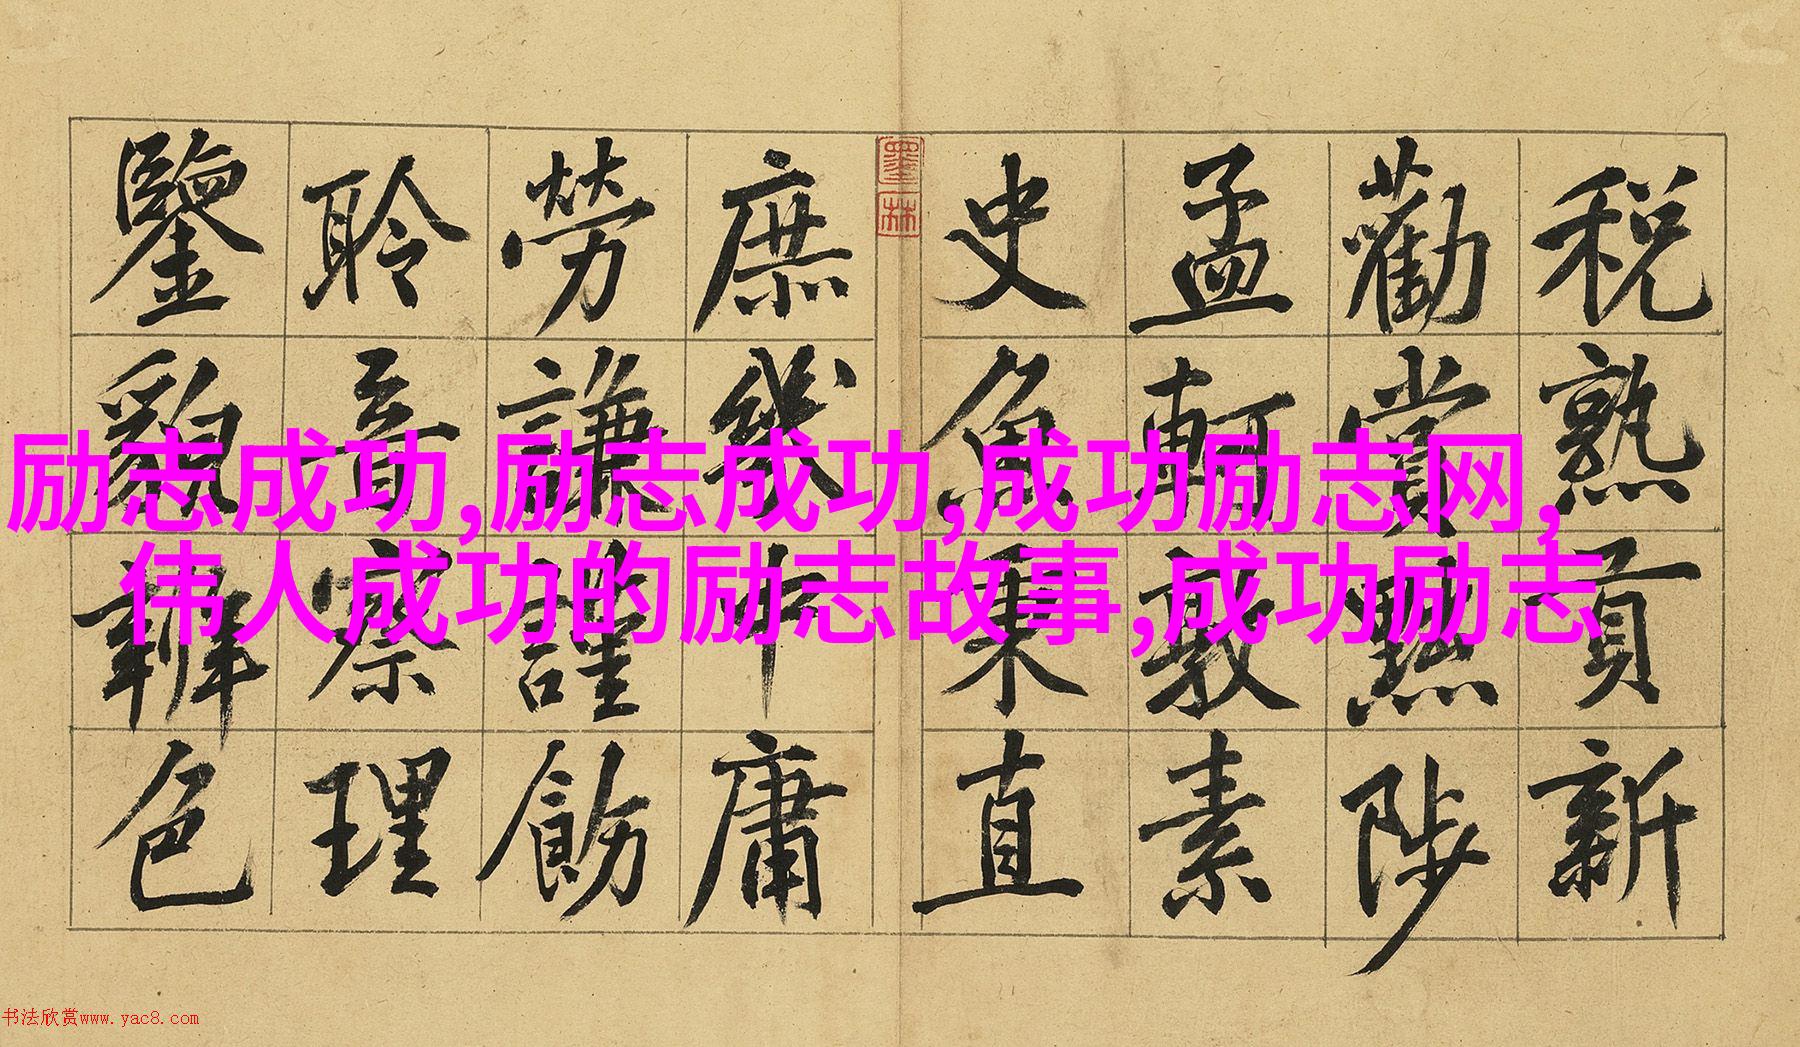 税熟貢新
勸賞黜陟
孟軻敦素
史魚秉直
庶幾中庸
勞謙謹飭
聆音察理
鑒貌辨色
墨林
励志成功,励志成功,成功励志网,
伟人成功的励志故事,成功励志
书法欣赏www.yac8.com